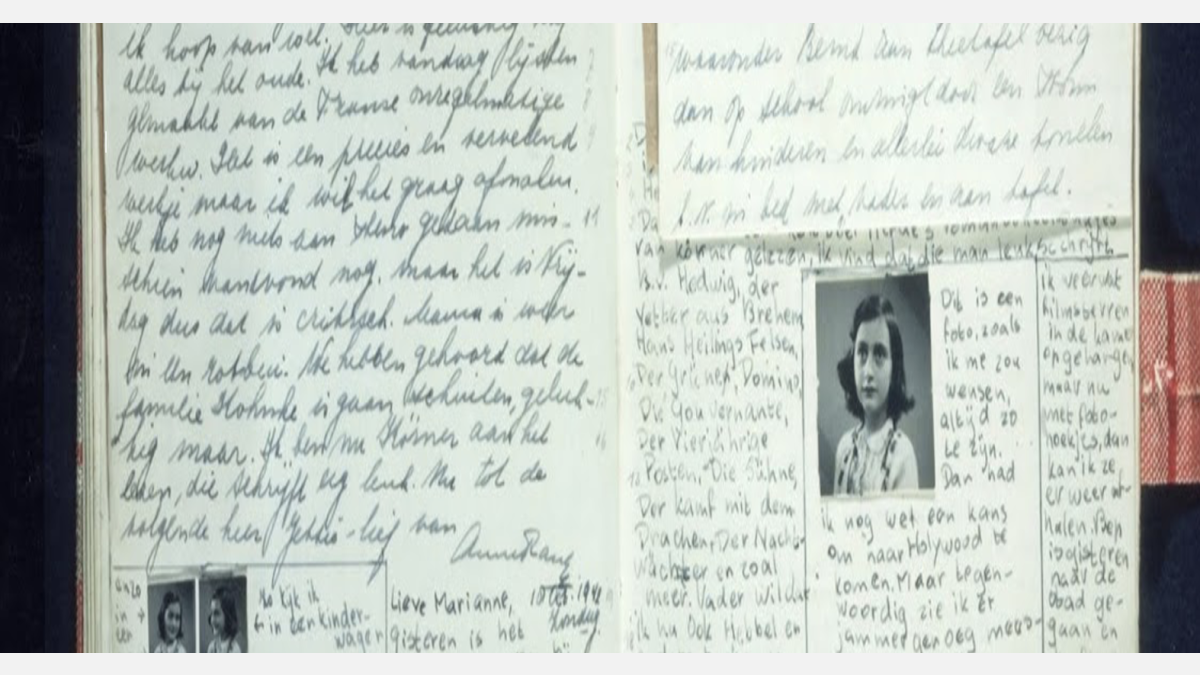 ik hoop van wel. Hier is
alles bij het oude. Ik heb vandaag lijsten
gemaakt van de Franse onregelmatige
werkw. Het is een precies en vervelend
werkje maar ik wil het graag afmaken.
Ik heb nog niets aan steno gedaan mis-
schien vanavond nog. maar het is Vrij-
dag dus dat is critisch. Mama is weer
We hebben gehoord dat de
familie is gaan schuilen, geluk-
kig maar. Ik ben nu Körner aan het
lezen, die schrijft erg leuk. Nu tot de
volgende keer Jettie-lief van
Anne Frank
anzo
in →
een
Zo kijk ik
← in een kinder-
wagen
Lieve Marianne,
10 Oct. 1942
Zondag.
gisteren is het
waaronder Bernd aan theetafel bezig
dan op school omringd door een
van kinderen en allerlei
b.v. in bed met vader en aan tafel.
van Körner gelezen, ik vind dat die man leuk schrijft.
b.v. Hedwig, der
Vetter aus Bremen
Hans Heilings Felsen,
Der Grüner, Domino,
Die Gouvernante,
Der Vierjährige
Posten, Die Sühne,
Der Kampf mit dem
Drachen, Der Nacht-
wächter en zoal
meer. Vader wil dat
ik nu ook Hebbel en
Dit is een
foto, zoals
ik me zou
wensen,
altijd zo
te zijn.
Dan had
ik nog wel een kans
om naar Holywood te
komen. Maar tegen-
woordig zie ik er
jammer genoeg mees-
ik veel
filmsterren
in de kamer
opgehangen
maar nu
met foto-
hoekjes, dan
kan ik ze
er weer af-
halen. Bep
is gisteren
naar de
stad ge-
gaan en